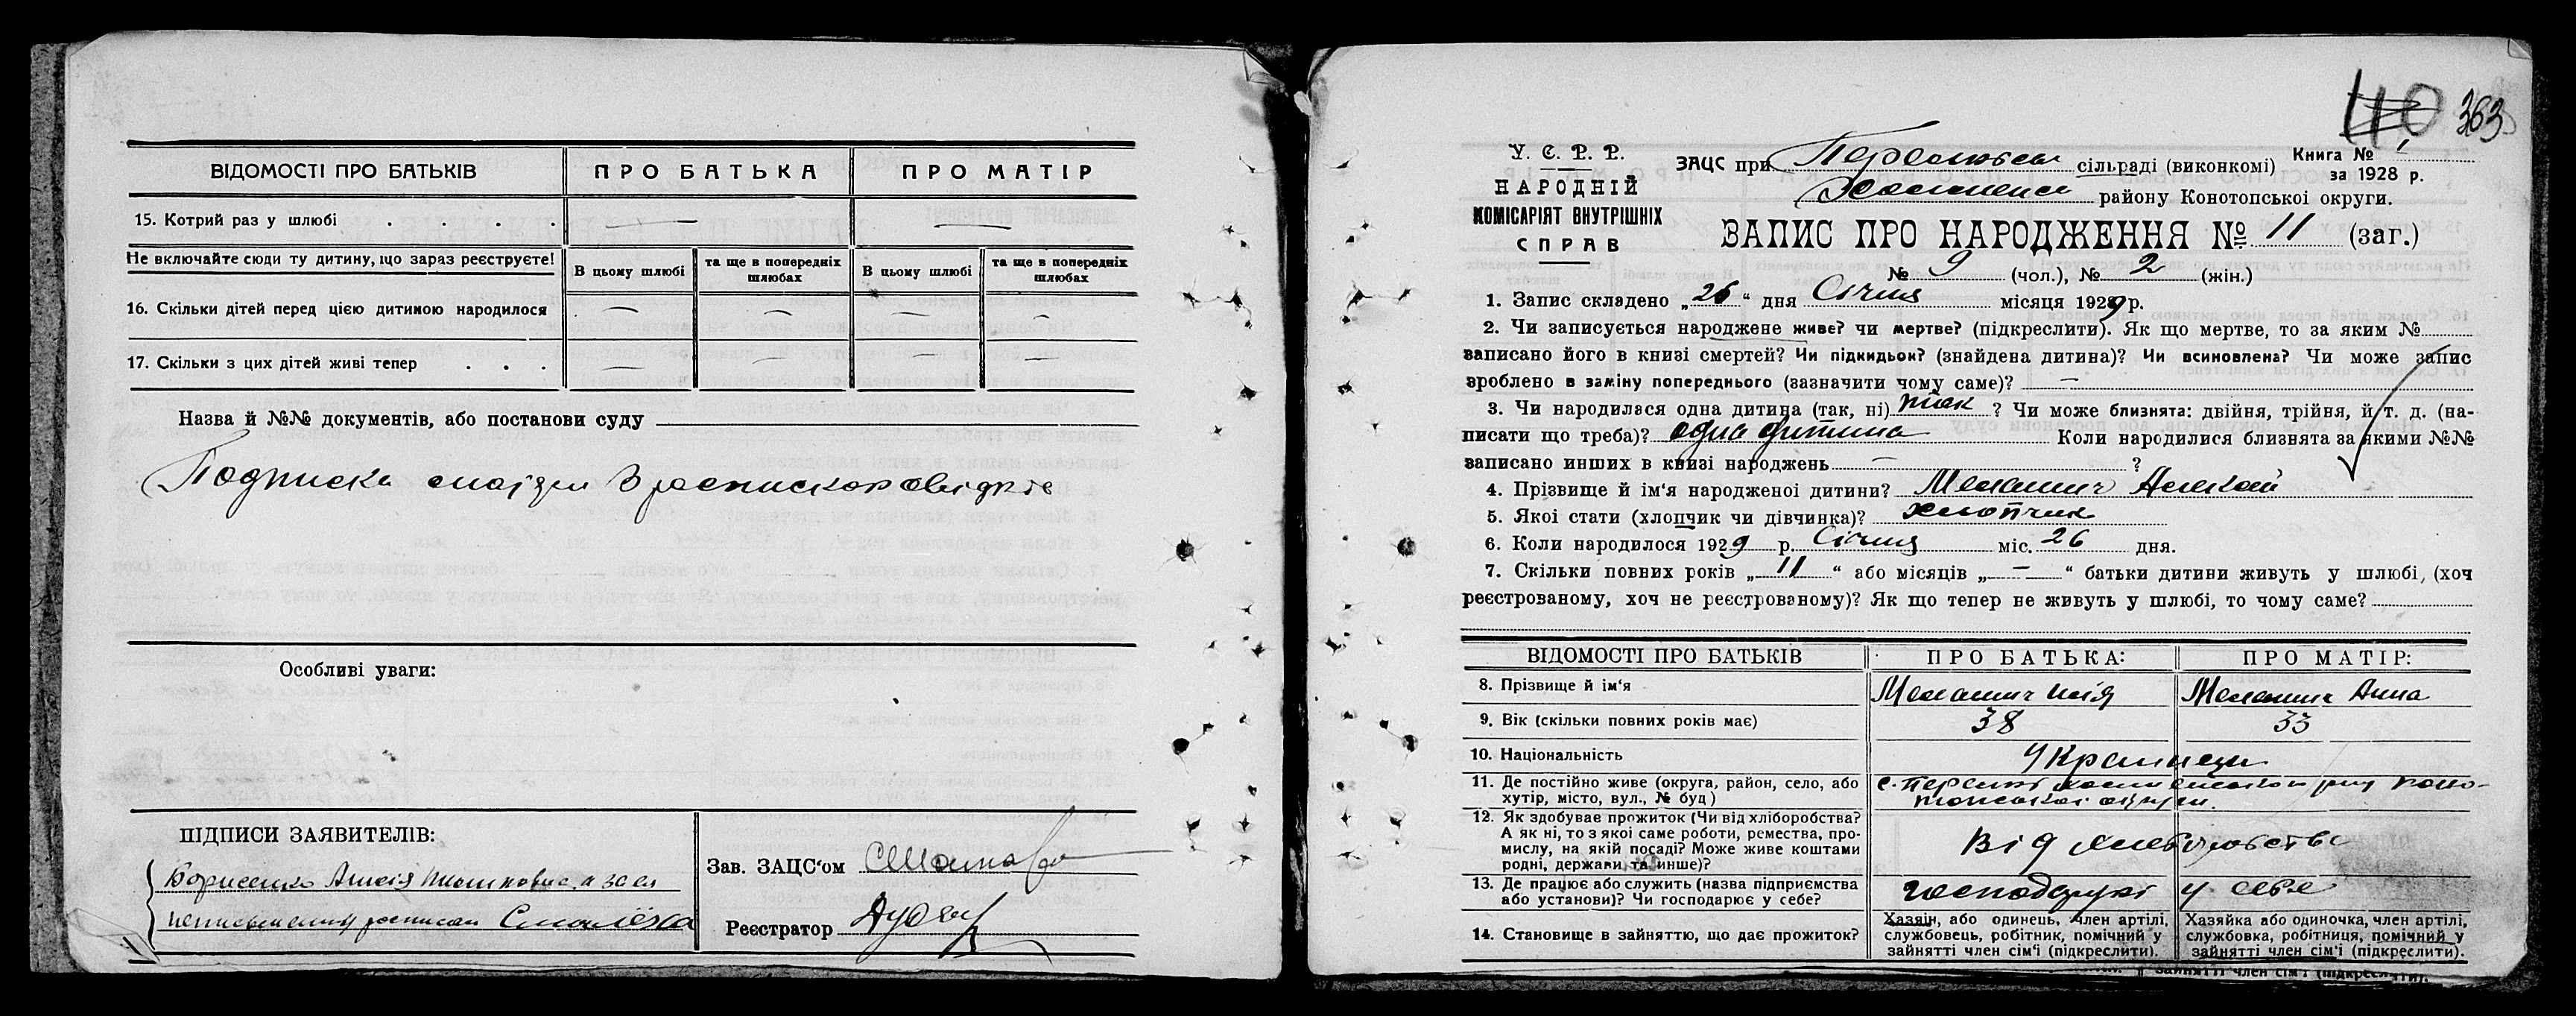 ВІДОМОСТІ ПРО БАТЬКІВ ПРО БАТЬКА ПРО МАТІР
15. Котрий раз у шлюбі . . . . — —
Не включайте сюди ту дитину, що зараз реєструєте! В цьому шлюбі та ще в попередніх шлюбах В цьому шлюбі та ще в попередніх шлюбах
16. Скільки дітей перед цією дитиною народилося — — — —
17. Скільки з цих дітей живі тепер . . . — — — —
Назва й №№ документів, або постанови суду
Подписка
Особливі уваги:
ПІДПИСИ ЗАЯВИТЕЛІВ:
Борисенко
Зав. ЗАЦС'ом
Реєстратор
110 363
У. С. Р. Р.
НАРОДНІЙ
КОМІСАРІЯТ ВНУТРІШНІХ
СПРАВ
ЗАЦС при сільраді (виконкомі) Книга № 1
за 1928 р.
району Конотопської округи.
ЗАПИС ПРО НАРОДЖЕННЯ № 11 (заг.)
№ 9 (чол.), № 2 (жін.)
1. Запис складено „26“ дня Січня місяця 1929 р.
2. Чи записується народжене живе? чи мертве? (підкреслити). Як що мертве, то за яким №
записано його в книзі смертей? Чи підкидьок? (знайдена дитина)? Чи всиновлена? Чи може запис
зроблено в заміну попереднього (зазначити чому саме)? —
3. Чи народилася одна дитина (так, ні) так ? Чи може близнята: двійня, трійня, й т. д. (на-
писати що треба)? одна дитина Коли народилися близнята за якими №№
записано инших в книзі народжень — ?
4. Прізвище й ім'я народженої дитини?
5. Якої стати (хлопчик чи дівчинка)? хлопчик
6. Коли народилося 1929 р. Січня міс. 26 дня.
7. Скільки повних років „11“ або місяців „—“ батьки дитини живуть у шлюбі, (хоч
реєстрованому, хоч не реєстрованому)? Як що тепер не живуть у шлюбі, то чому саме?
ВІДОМОСТІ ПРО БАТЬКІВ ПРО БАТЬКА: ПРО МАТІР:
8. Прізвище й ім'я Анна
9. Вік (скільки повних років має) 38 33
10. Національність Українци
11. Де постійно живе (округа, район, село, або
хутір, місто, вул., № буд)
12. Як здобуває прожиток (Чи від хліборобства?
А як ні, то з якої саме роботи, ремества, про-
мислу, на якій посаді? Може живе коштами
родні, держави та инше)? Від хліборобства
13. Де працює або служить (назва підприємства
або установи)? Чи господарює у себе? господарує у себе
14. Становище в зайняттю, що дає прожиток?
Хазяін, або одинець, член артілі,
службовець, робітник, помічний у
зайнятті член сім'і (підкреслити).
Хазяйка або одиночка, член артілі,
службовка, робітниця, помічний у
зайнятті член сім'і (підкреслити).